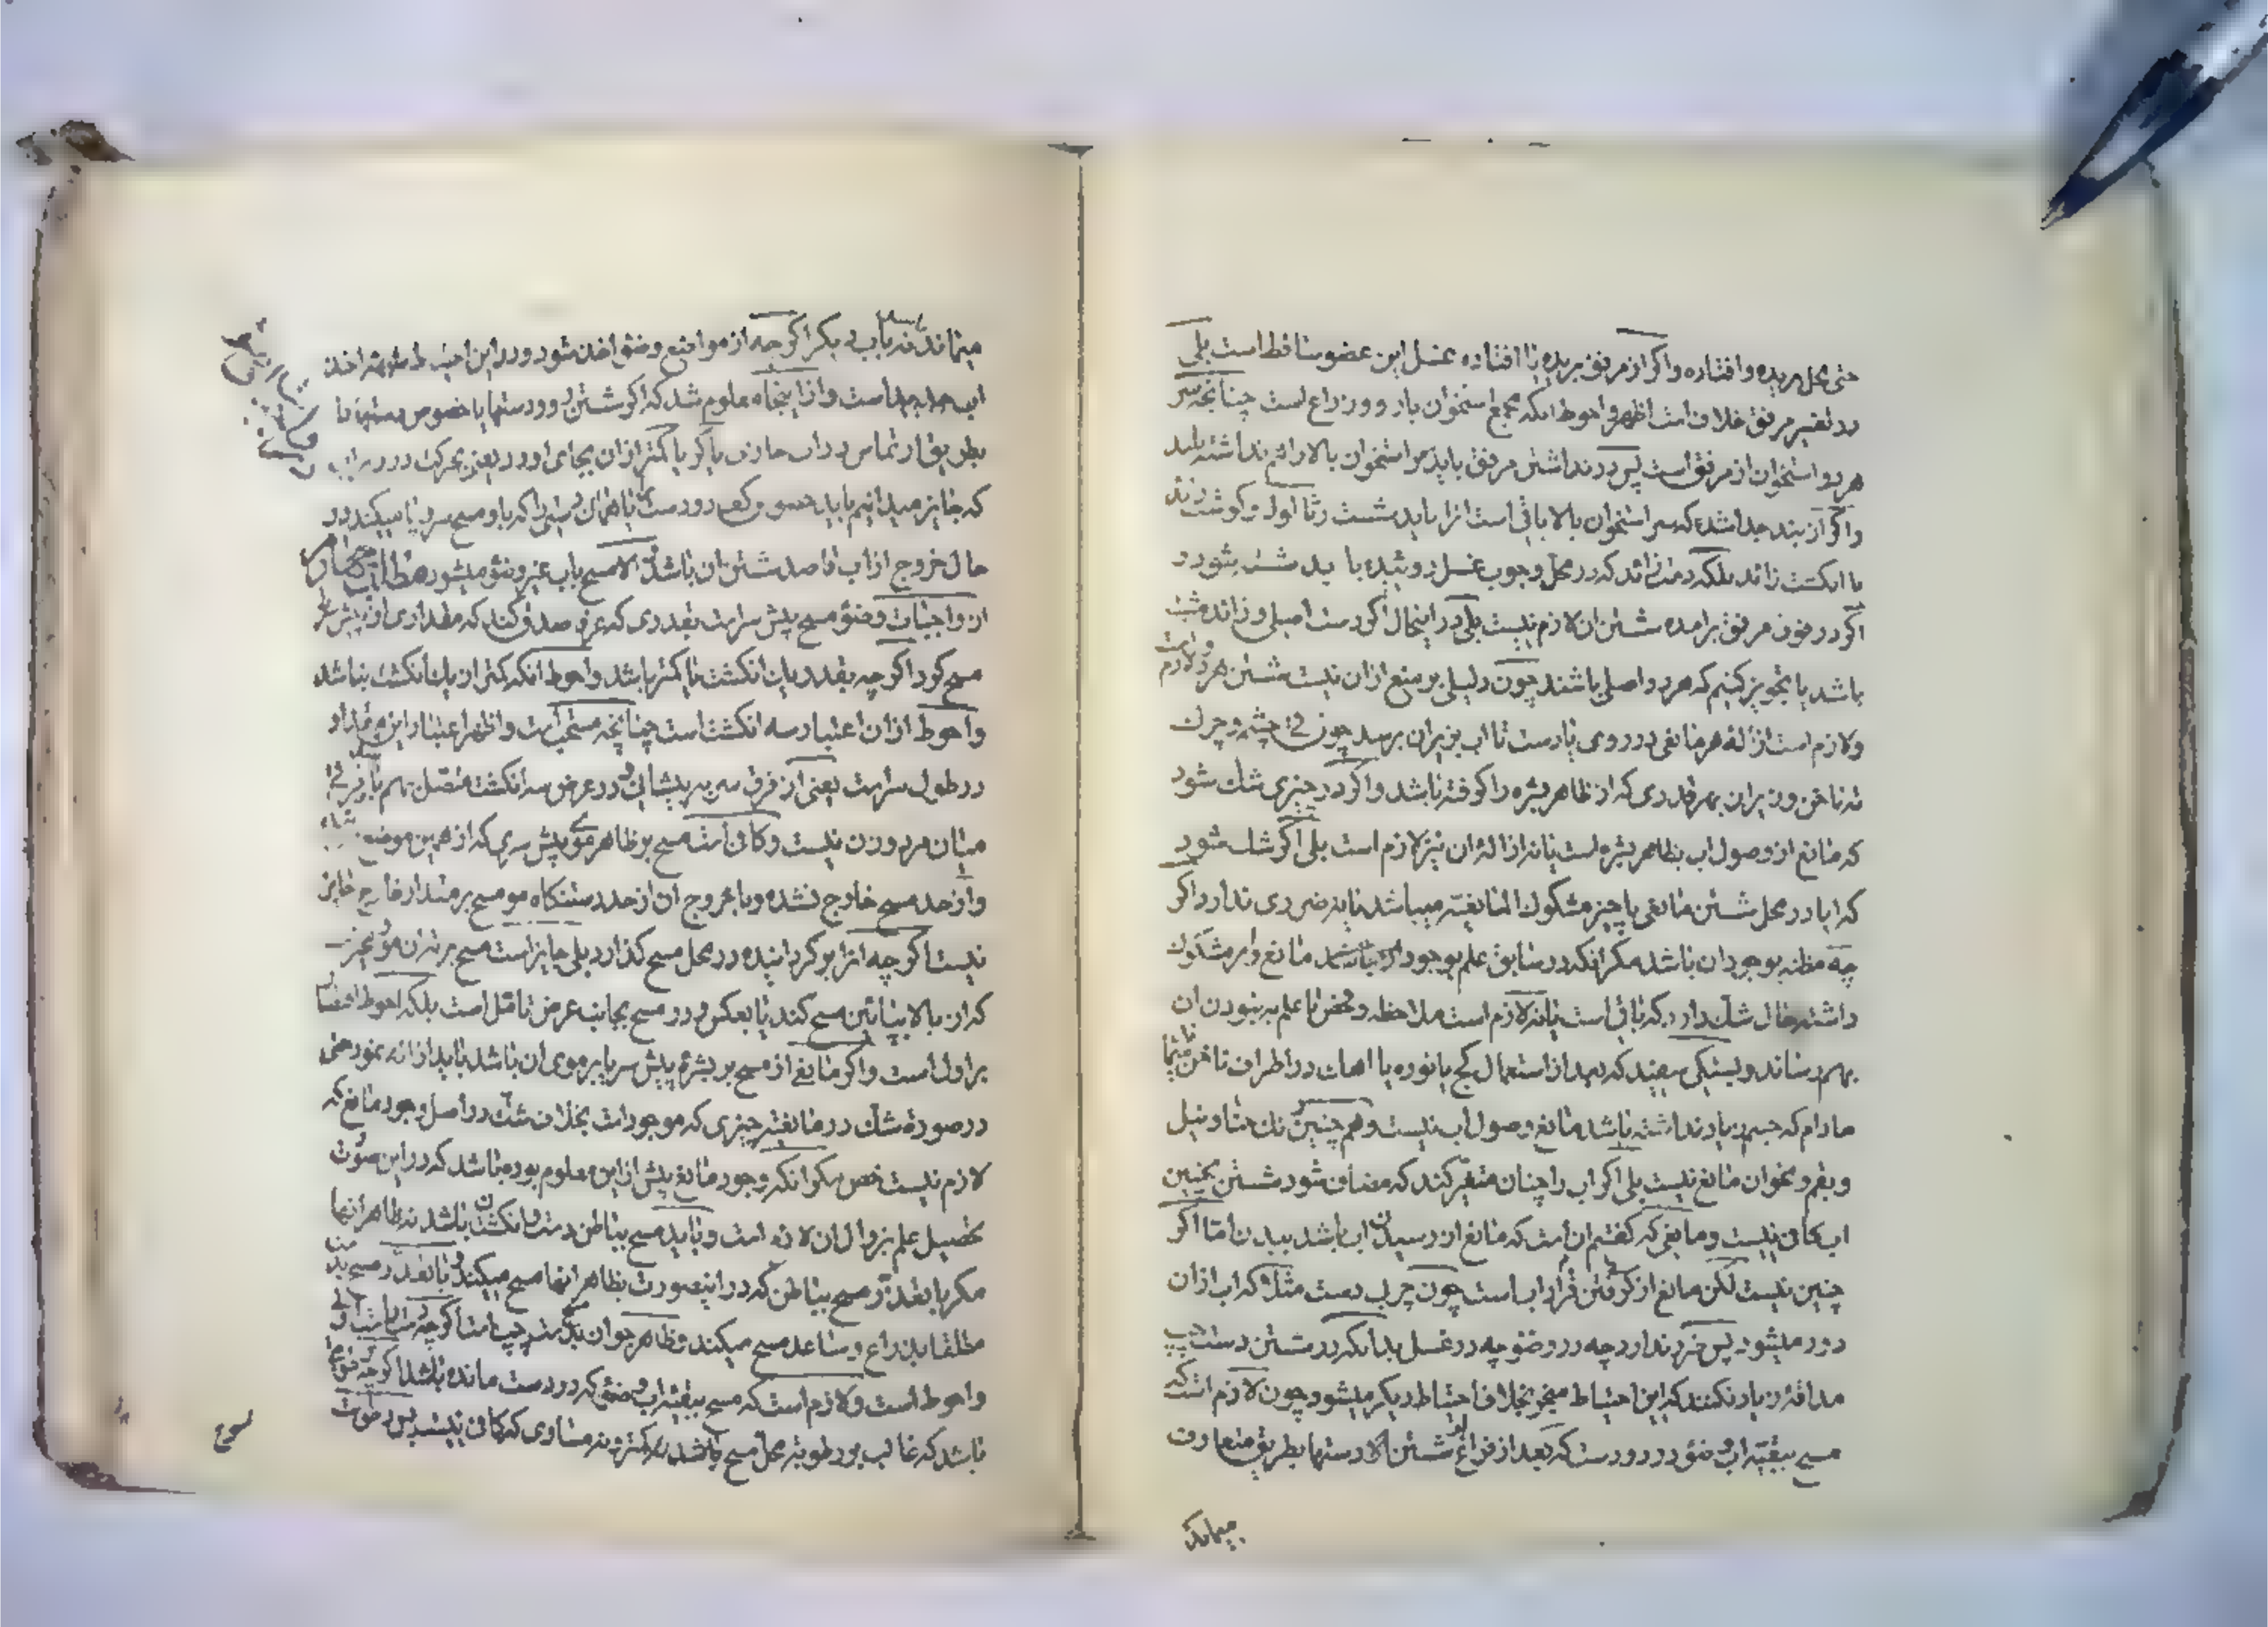 حتی محل بریده و افتاده و اگر از مرفق بریده یا افتاده غسل این عضو ساقط است بلی
در تفسیر مرفق خلاف است اظهر و احوط آنکه مجمع استخوان بازو و ذراع است چنانچه سر
هر دو استخوان از مرفق است پس در نداشتن مرفق باید سر استخوان بالا را هم نداشته باشد
و اگر از بند جدا شده که سر استخوان بالا باقی است آنرا باید شست و گوشت زائد
یا انگشت زائد بلکه دست زائد که در محل وجوب غسل روئیده باید شسته شود و
اگر در فوق مرفق برآمده شستن آن لازم نیست بلی در اینحال اگر دست اصلی و زائد مشتبه
باشد یا تجویز کنیم که هر دو اصلی باشند چون دلیلی بر منع از آن نیست شستن هر دو لازم است
و لازم است ازاله هر مانعی در روی یا دست تا آب بزیر آن برسد چون قی چشم و چرک
ته ناخن و زیر آن بهر قدری که از ظاهر بشره را گرفته باشد و اگر در چیزی شک شود
که مانع از وصول آب بظاهر بشره است یا نه ازاله آن نیز لازم است بلی اگر شک شود
که آیا در محل شستن مانعی یا چیز مشکوک المانعیته میباشد یا نه ضرری ندارد اگر
چه مظنه بوجود آن باشد مگر آنکه در سابق علم بوجود مانع و امر مشکوک
داشته حال شک دارد که باقی است یا نه لازم است ملاحظه و فحص تا علم به نبودن آن
بهم رساند و بستگی سفید که بعد از استعمال گچ یا نوره یا آهک در اطراف ناخن
مادام که جسم زیاد نداشته باشد مانع وصول آب نیست و همچنین رنگ حنا و نیل
و بقم و نحو آن مانع نیست بلی اگر آب را چنان متغیر کند که مضاف شود شستن بچنین
آب کافی نیست و مانعی که گفتیم آن است که مانع از رسیدن آب باشد ببدن اما اگر
چنین نیست لکن مانع از گرفتن قرار آب است چون چربی دست مثلا که آب از آن
دور میشود پس ضرر ندارد چه در وضو چه در غسل بدانکه در شستن دست چپ
مداقه زیاد نکنند که این احتیاط منجر بخلاف احتیاط دیگر میشود چون لازم است که
مسح ببقیه آب وضو در دو دست که بعد از فراغ شستن دستها بطریق متعارف
میماند
میماند نه بآب دیگر اگرچه از مواضع وضو اخذ شود و در این اخذ
آب جدید است و از اینجا معلوم شد که اگر شستن رو و دستها یا خصوص دستها را
بطریق ارتماس در آب جاری یا کر یا کمتر از آن بجای آورد یعنی بحرکت در زیر آب
که جایز میدانیم باید در
حال خروج از آب قاصد شستن آن باشد و الا مسح بآب غیر وضو میشود مطلب چهارم
از واجبات وضو مسح پیش سر است بقدری که عرف صدق کند که مقداری از پیش سر
مسح کرد اگرچه بقدر یک انگشت یا کمتر باشد و احوط آنکه کمتر از یک انگشت نباشد
و احوط از آن اعتبار سه انگشت است چنانچه مستحب است و اظهر اعتبار این مقدار
در طول سر است یعنی از فرق سر به پیشانی و در عرض سه انگشت متصل بهم و فرقی
میان مرد و زن نیست و کافی است مسح بر ظاهر موی پیش سری که از همین موضع
و از حد مسح خارج نشده و با خروج آن از حد رستنگاه مو مسح بر مقدار خارج جایز
نیست اگرچه آنرا برگردانیده در محل مسح گذارد بلی جایز است مسح بر
که از بالا بپائین مسح کند یا بعکس و در مسح بجانب عرض تامل است بلکه احوط اقتصار
بر اول است و اگر مانعی از مسح بر بشره پیش سر یا بر موی آن باشد باید ازاله نمود حتی
در صورة شک در مانعیته چیزی که موجود است بخلاف شک در اصل وجود مانع که
لازم نیست فحص مگر آنکه وجود مانع پیش از این معلوم بوده باشد که در این صورت
تحصیل علم بزوال آن لازم است و باید مسح بباطن دست و انگشتان باشد نه بظاهر آنها
مگر با تعذر مسح بباطن که در اینصورت بظاهر آنها مسح میکند و با تعذر مسح
مطلقا بذراع و ساعد مسح میکند و ظاهر جواز بدست چپ است اگرچه
و احوط است و لازم است که مسح ببقیه آب وضو که در دست مانده باشد اگرچه
باشد که غالب بر رطوبة محل مسح باشد نه کمتر و نه مساوی که کافی نیست پس در صورت